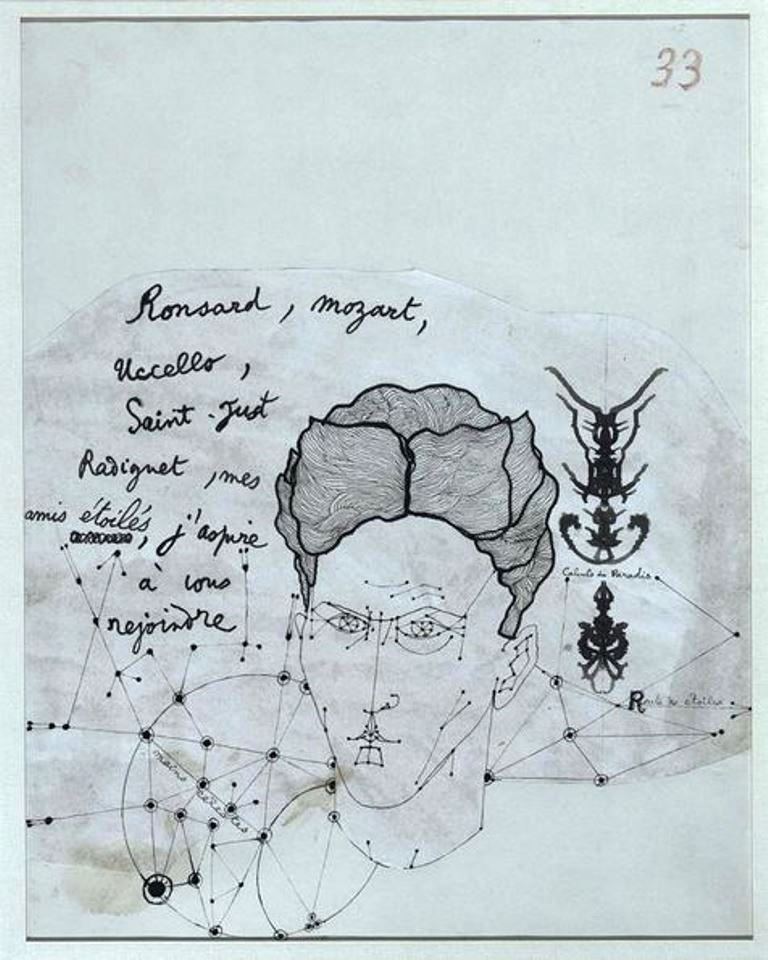 33
Ronsard, mozart,
Uccello,
Saint-Just
Radiguet, mes
amis étoilés
, j'aspire
à vous
rejoindre
Calculs du Paradis
Route des étoiles
mains